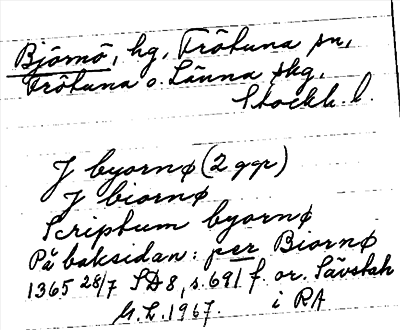 Björnö, hg, Frötuna sn,
Frötuna o. Länna skg,
Stockh. l.
J byornø (2 ggr)
J biornø
Scriptum byornø
På baksidan: per Biornø
1365 28/7 SD 8, s. 691 f. or. Sävstah
i RA
G.L. 1967.